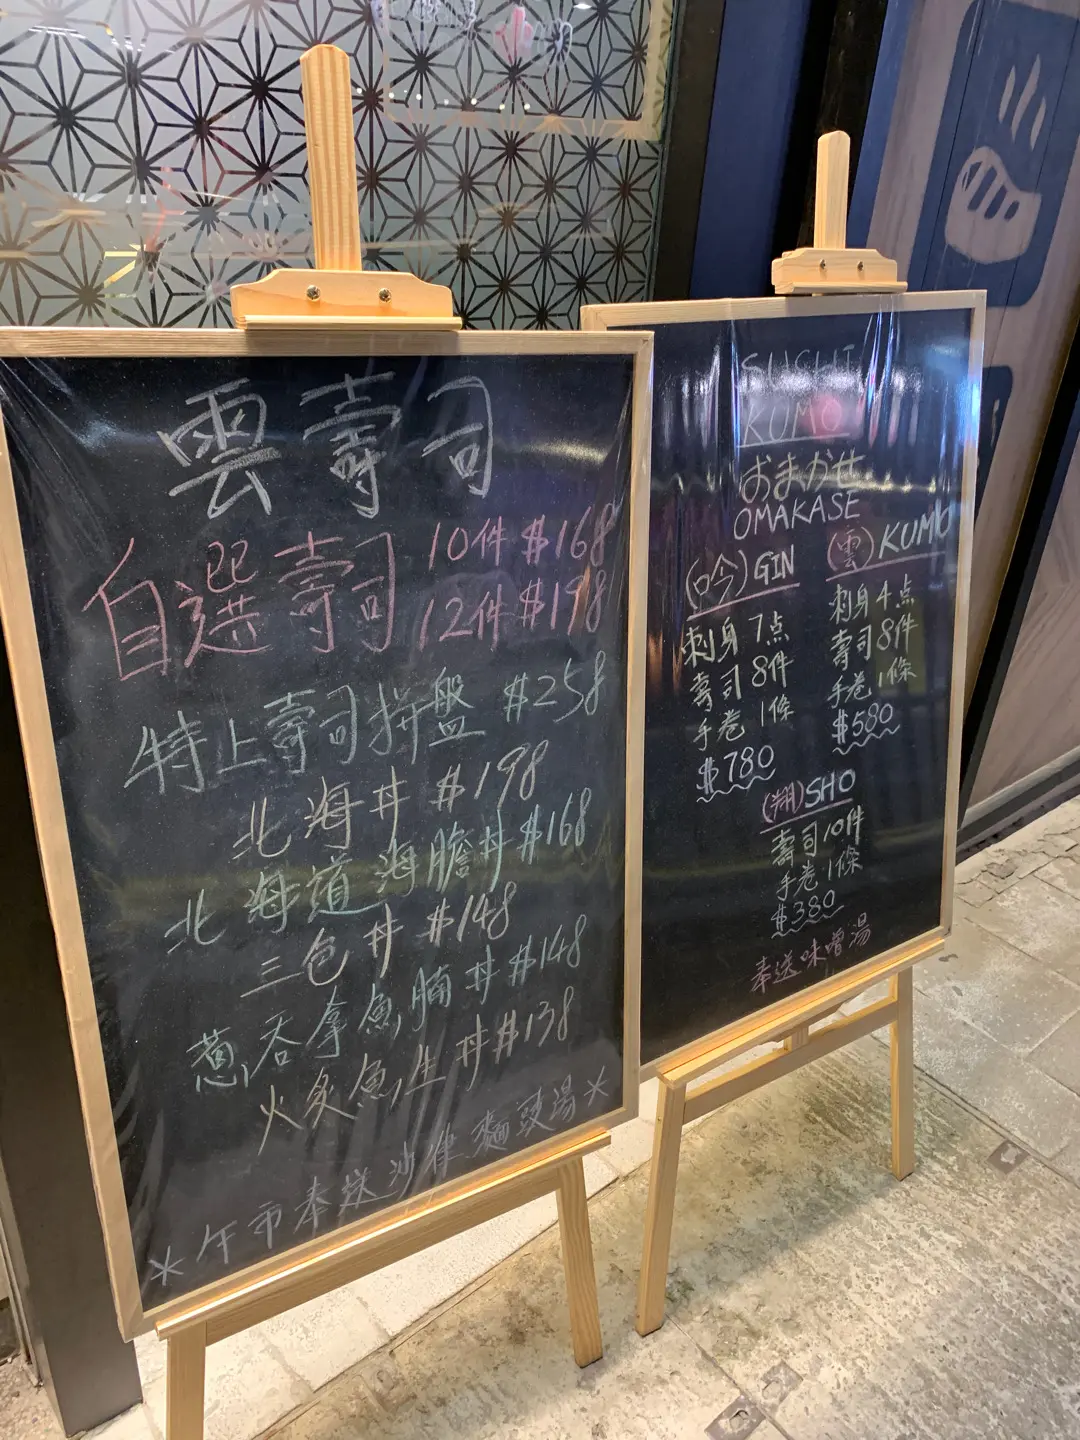 雲壽司
自選壽司 10件 $168
12件 $198
特上壽司拼盤 $258
北海丼 $198
北海道海膽丼 $168
三色丼 $148
蔥吞拿魚腩丼 $148
火炙魚生丼 $138
*午市奉送沙律麵豉湯*
SUSHI
KUMO
おまかせ
OMAKASE
(吟) GIN
刺身 7点
壽司 8件
手卷 1條
$780
(雲) KUMO
刺身 4点
壽司 8件
手卷 1條
$580
(翔) SHO
壽司 10件
手卷 1條
$380
奉送味噌湯